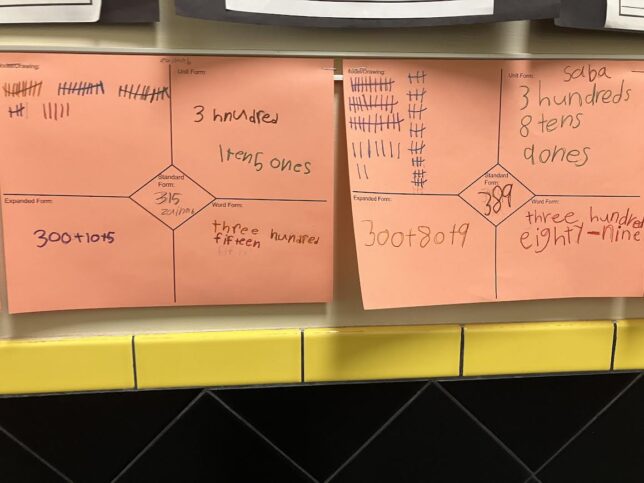 Unit Form:
3 hnudred
1 ten 5 ones
Standard
Form:
315
Expanded Form:
300+10+5
Word Form:
three hundred
fifteen
Model/Drawing:
Unit Form:
saba
3 hundreds
8 tens
9 ones
Standard
Form:
389
Expanded Form:
300+80+9
Word Form:
three hundred
eighty-nine